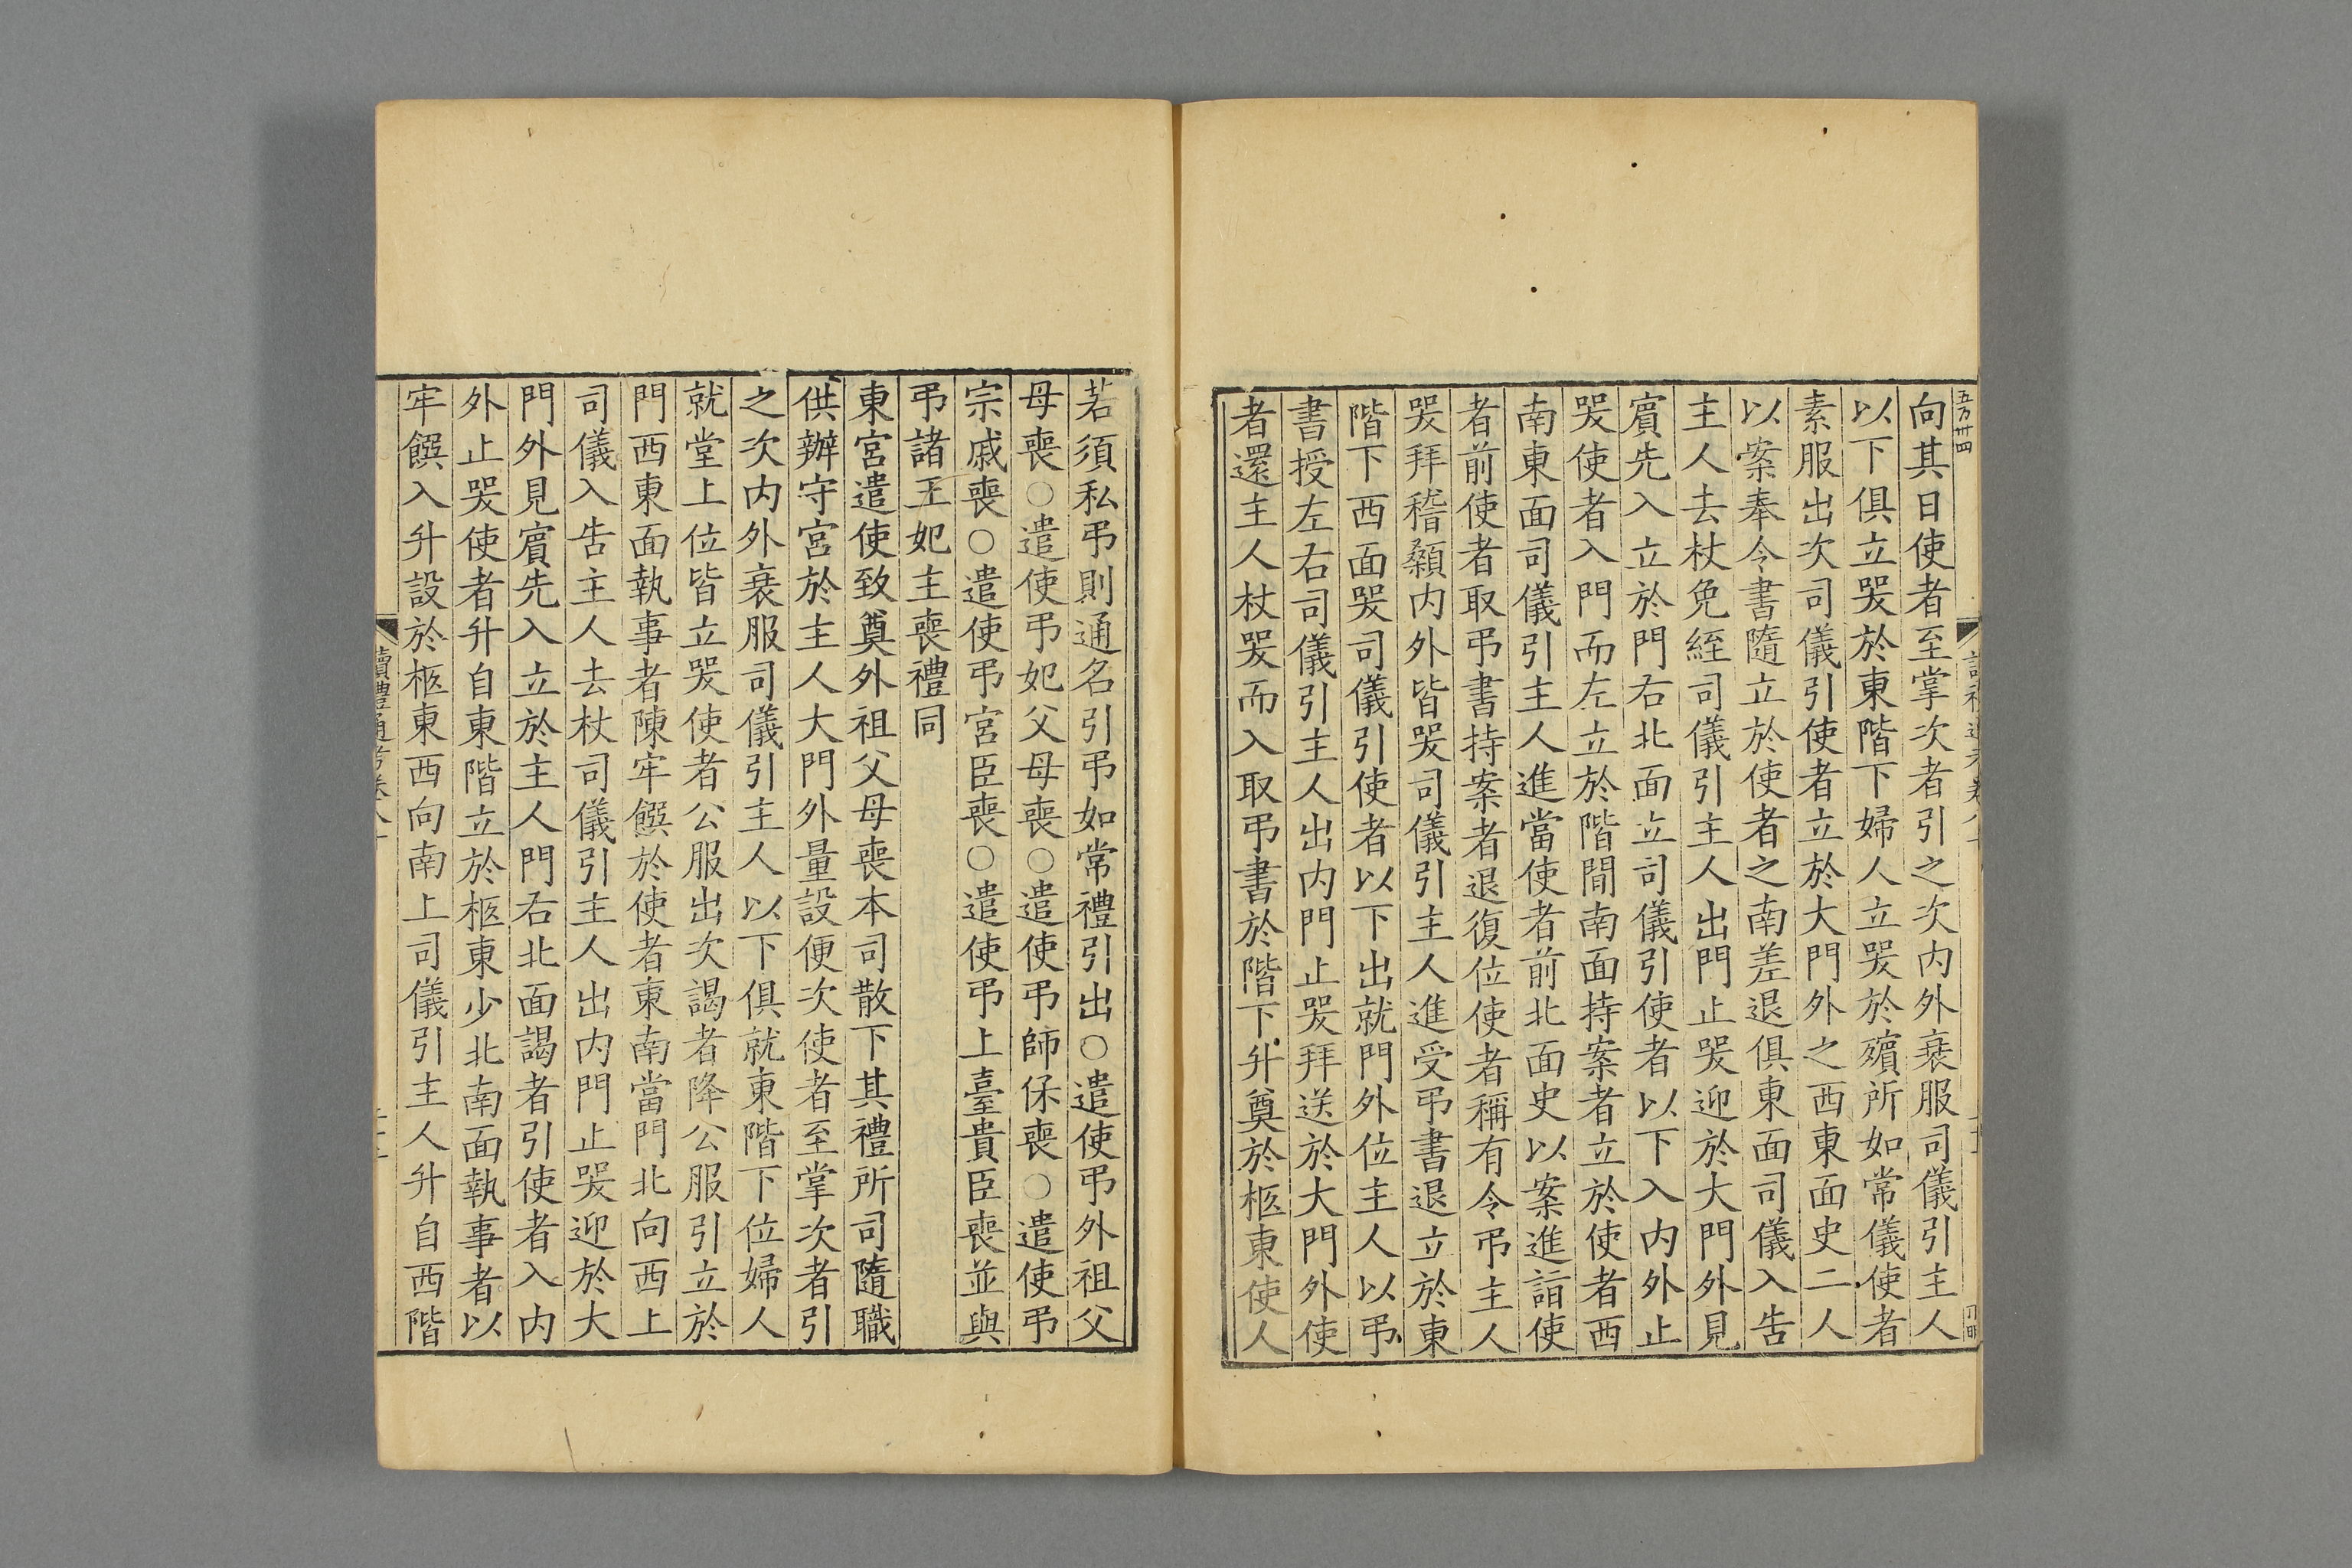 五万廿四
向其日使者至掌次者引之次内外衰服司儀引主人
以下俱立哭於東階下婦人立哭於殯所如常儀使者
素服出次司儀引使者立於大門外之西東面史二人
以案奉令書隨立於使者之南差退俱東面司儀入告
主人去杖免絰司儀引主人出門止哭迎於大門外見
賔先入立於門右北面立司儀引使者以下入内外止
哭使者入門而左立於階間南面持案者立於使者西
南東面司儀引主人進當使者前北面史以案進詣使
者前使者取弔書持案者退復位使者稱有令弔主人
哭拜稽顙内外皆哭司儀引主人進受弔書退立於東
階下西面哭司儀引使者以下出就門外位主人以弔
書授左右司儀引主人出内門止哭拜送於大門外使
者還主人杖哭而入取弔書於階下升奠於柩東使人
若須私弔則通名引弔如常禮引出○遣使弔外祖父
母喪○遣使弔妃父母喪○遣使弔師保喪○遣使弔
宗戚喪○遣使弔宮臣喪○遣使弔上臺貴臣喪並與
弔諸王妃主喪禮同
東宮遣使致奠外祖父母喪本司散下其禮所司隨職
供辦守宮於主人大門外量設便次使者至掌次者引
之次内外衰服司儀引主人以下俱就東階下位婦人
就堂上位皆立哭使者公服出次謁者降公服引立於
門西東面執事者陳牢饌於使者東南當門北向西上
司儀入告主人去杖司儀引主人出内門止哭迎於大
門外見賔先入立於主人門右北面謁者引使者入内
外止哭使者升自東階立於柩東少北南面執事者以
牢饌入升設於柩東西向南上司儀引主人升自西階
讀禮通考卷八十